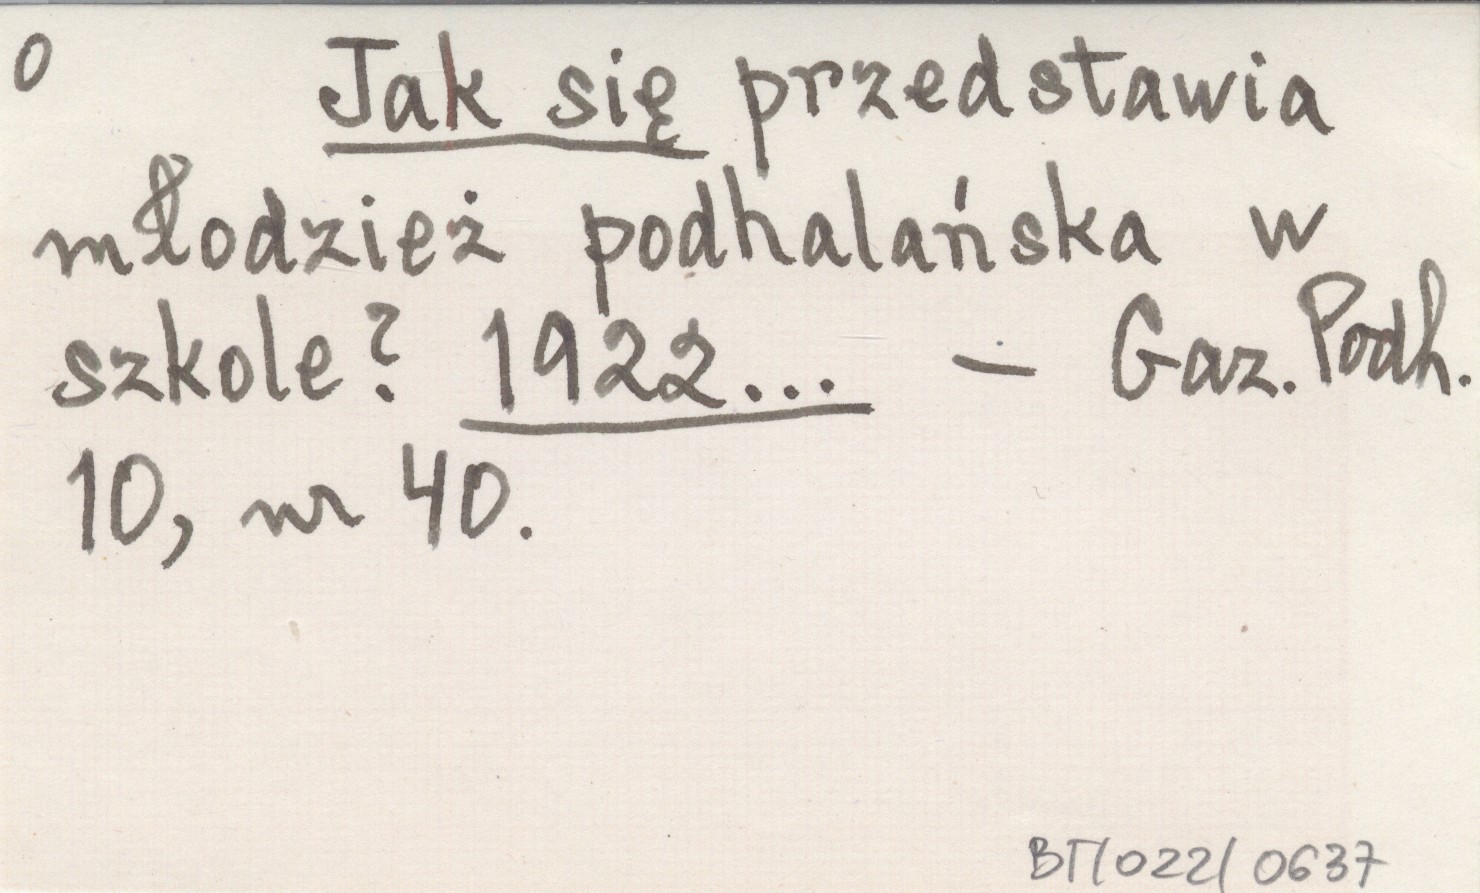 0 Jak się przedstawia
młodzież podhalańska w
szkole? 1922... – Gaz. Podh.
10, nr 40.
BT/022/0637